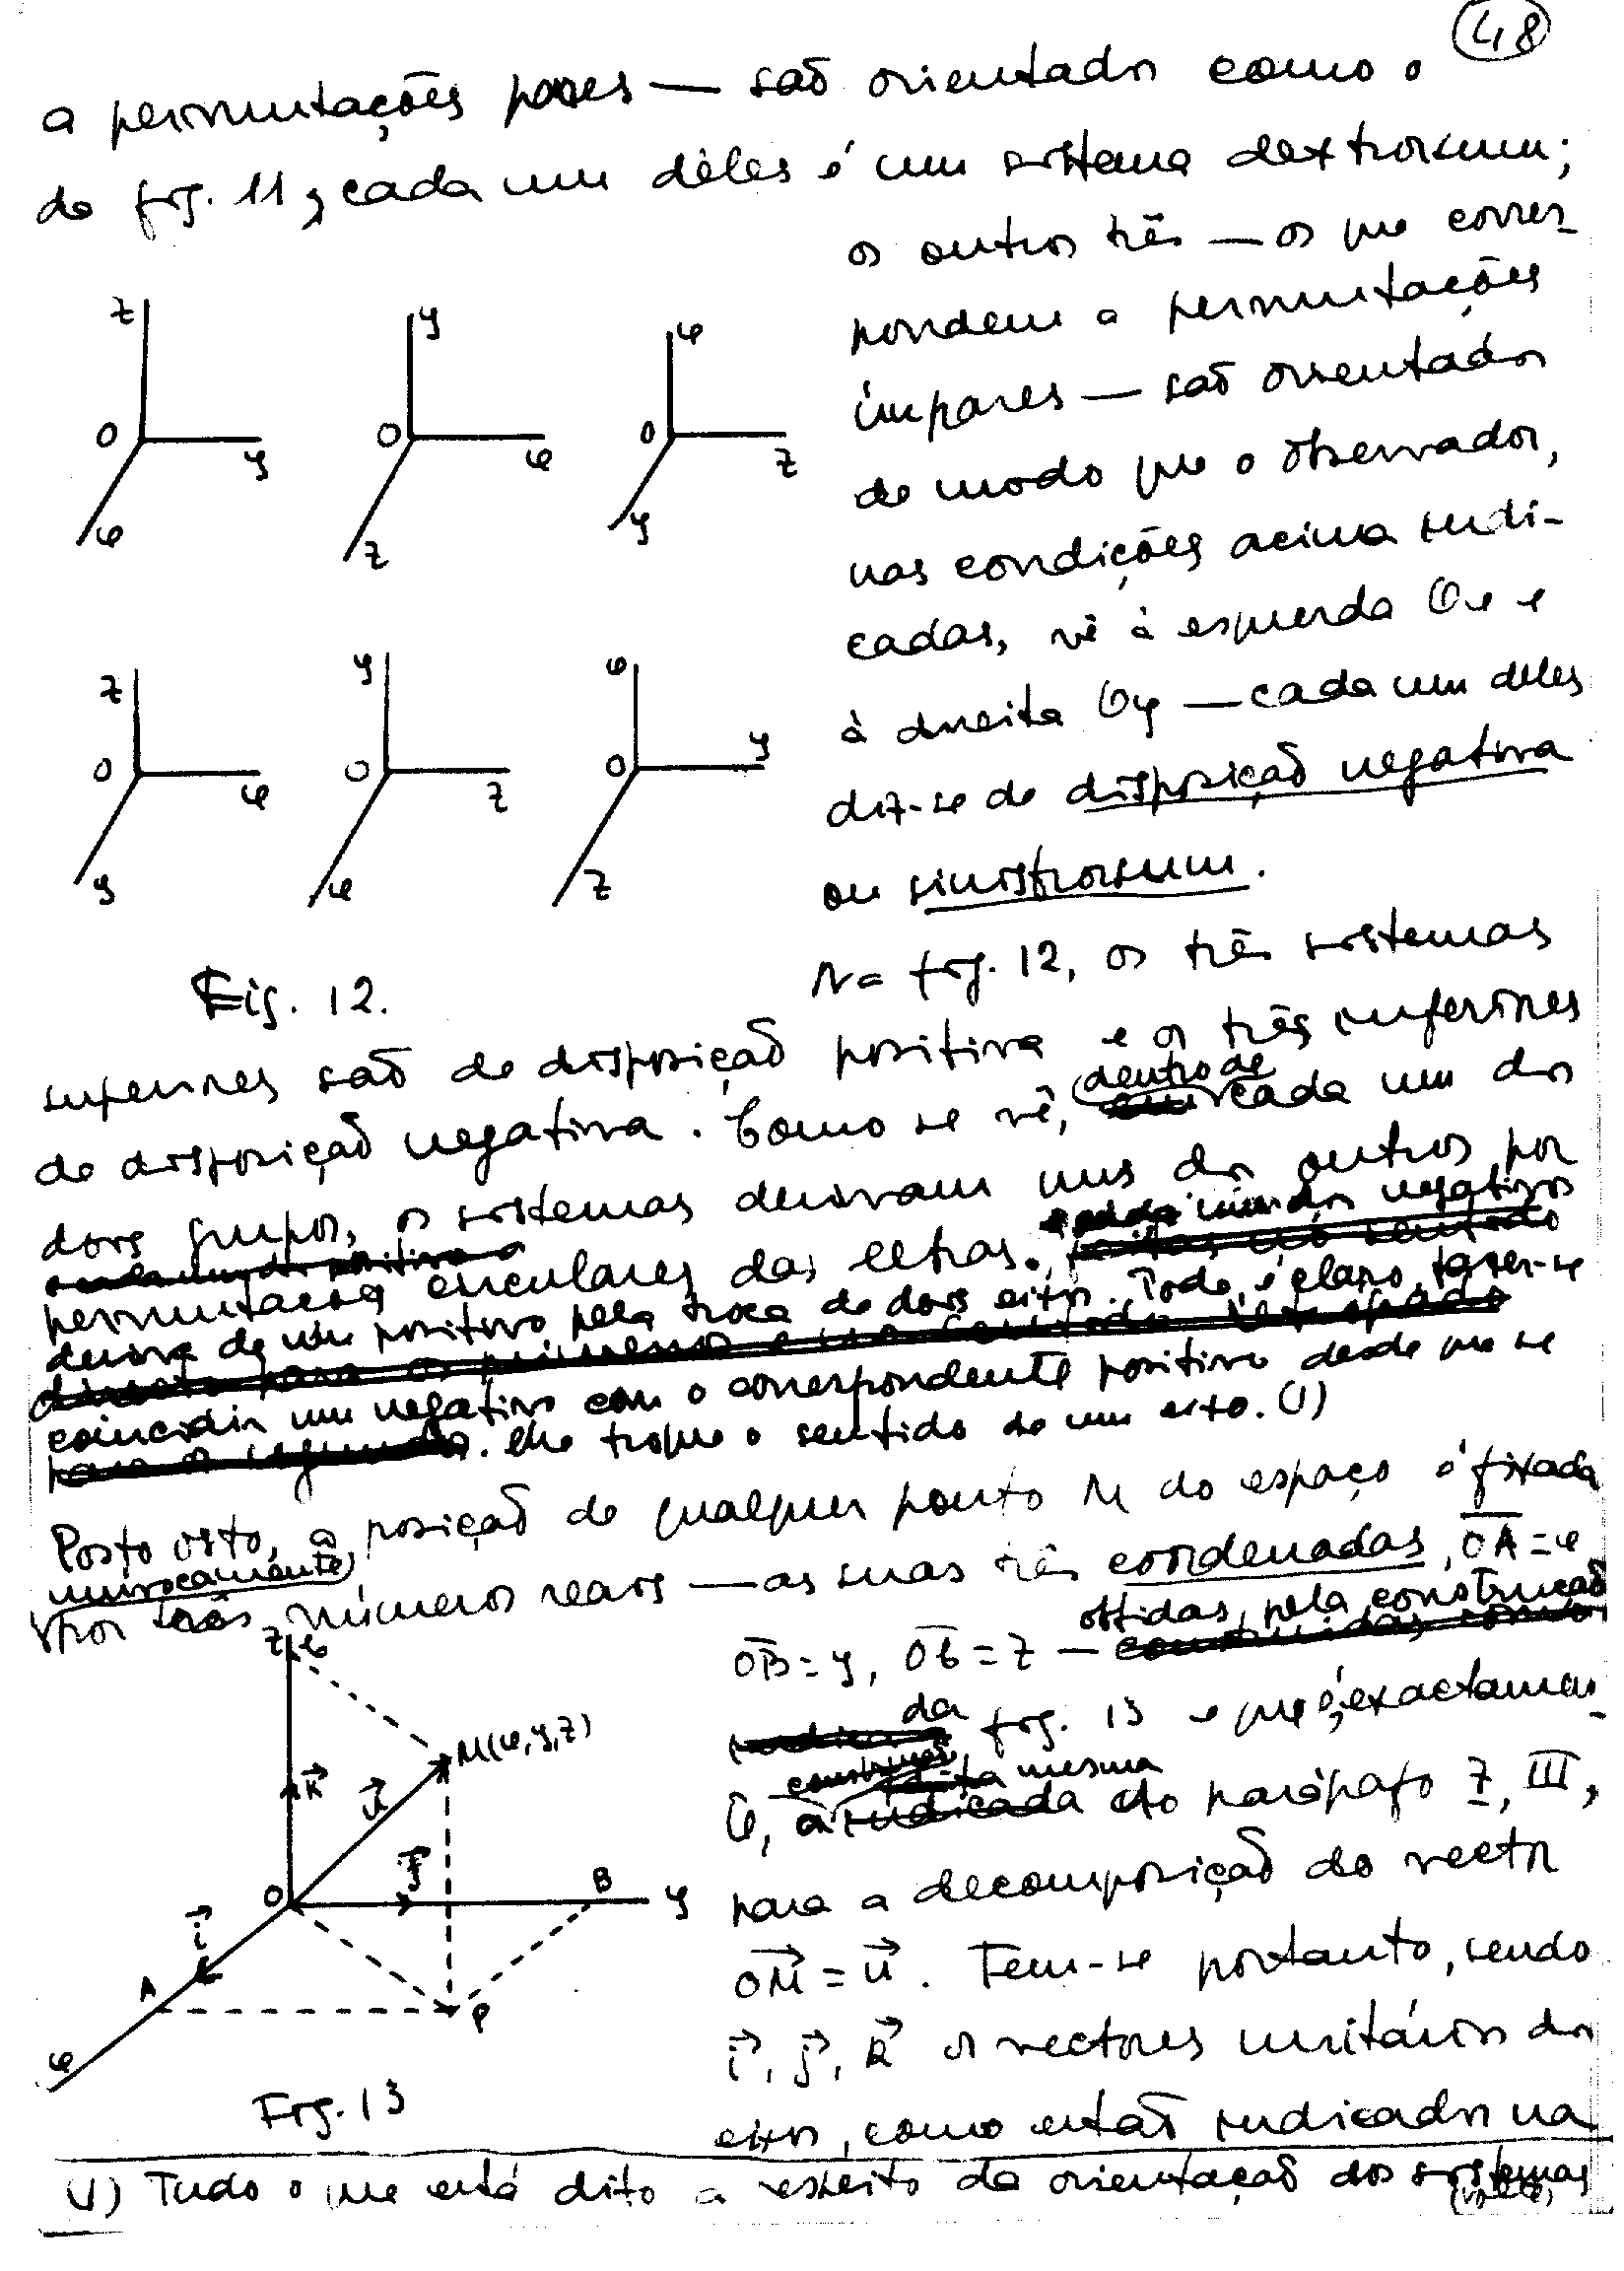 48
a permutações pares — são orientados como o
da fig. 11, cada um dêles é um sistema dextrorsum;
os outros três — os que corres-
pondem a permutações
ímpares — são orientados
de modo que o observador,
nas condições acima indi-
cadas, vê à esquerda Ox e
à direita Oy — cada um deles
diz-se de disposição negativa
ou sinistrorsum.
z y x
O y O x O z
x z y
z y x
O x O z O y
y x z
Fig. 12.
Na fig. 12, os três sistemas
superiores são de disposição positiva e os três inferiores
de disposição negativa. Como se vê, dentro de cada um dos
dois grupos, os sistemas derivam uns dos outros por
permutações circulares das letras. cada um dos negativos
deriva de um positivo pela troca de dois eixos. Pode, é claro, fazer-se
coincidir um negativo com o correspondente positivo desde que se
lhe troque o sentido de um eixo. (1)
Posto isto, a posição de qualquer ponto M do espaço é fixada
univocamente
por três números reais — as suas três coordenadas, OA = x
OB = y, OC = z — obtidas, pela construção
da fig. 13 e que é, exactamen-
te, a mesma construção do parágrafo 7, III,
para a decomposição do vector
OM = u. Tem-se portanto, sendo
i, j, k os vectores unitários dos
eixos, como estão indicados na
z C
M(x,y,z)
k u
O j B y
i
A P
x
Fig. 13
(1) Tudo o que está dito a respeito da orientação dos sistemas